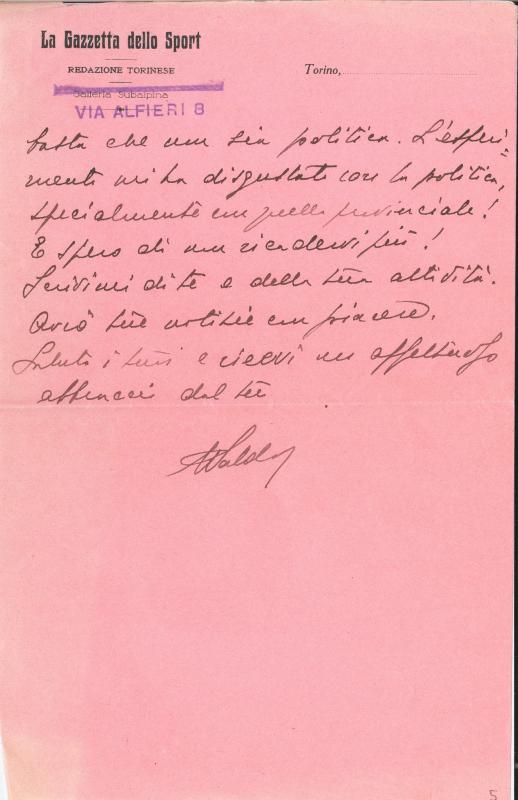 La Gazzetta dello Sport
REDAZIONE TORINESE
Torino,
Galleria Subalpina
VIA ALFIERI 8
basta che non sia politica. L'esperi=
mento mi ha disgustato con la politica,
specialmente con quella provinciale!
E spero di non ricadervi più!
Scrivimi di te e della tua attività.
Avrò tue notizie con piacere.
Saluta i tuoi e ricevi un affettuoso
abbraccio dal tuo
5